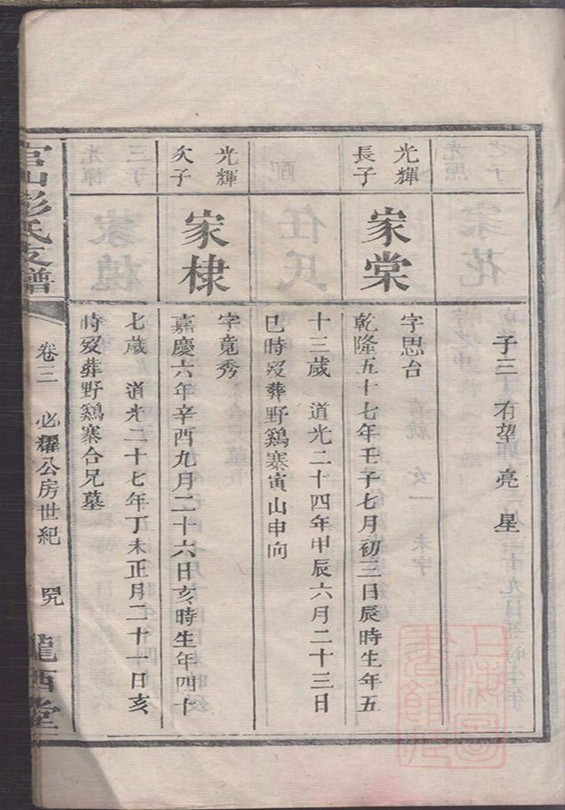 子三 有望 亮 星
光輝
長子
家棠
字思台
乾隆五十七年壬子七月初三日辰時生年五
十三歲 道光二十四年甲辰六月二十三日
巳時歿葬野鷄寨寅山申向
光輝
次子
家棣
字竟秀
嘉慶六年辛酉九月二十六日亥時生年四十
七歲 道光二十七年丁未正月二十一日亥
時歿葬野鷄寨合兄墓
官山彭氏支譜
卷三 必耀公房世紀
隴西堂
上海圖書館藏